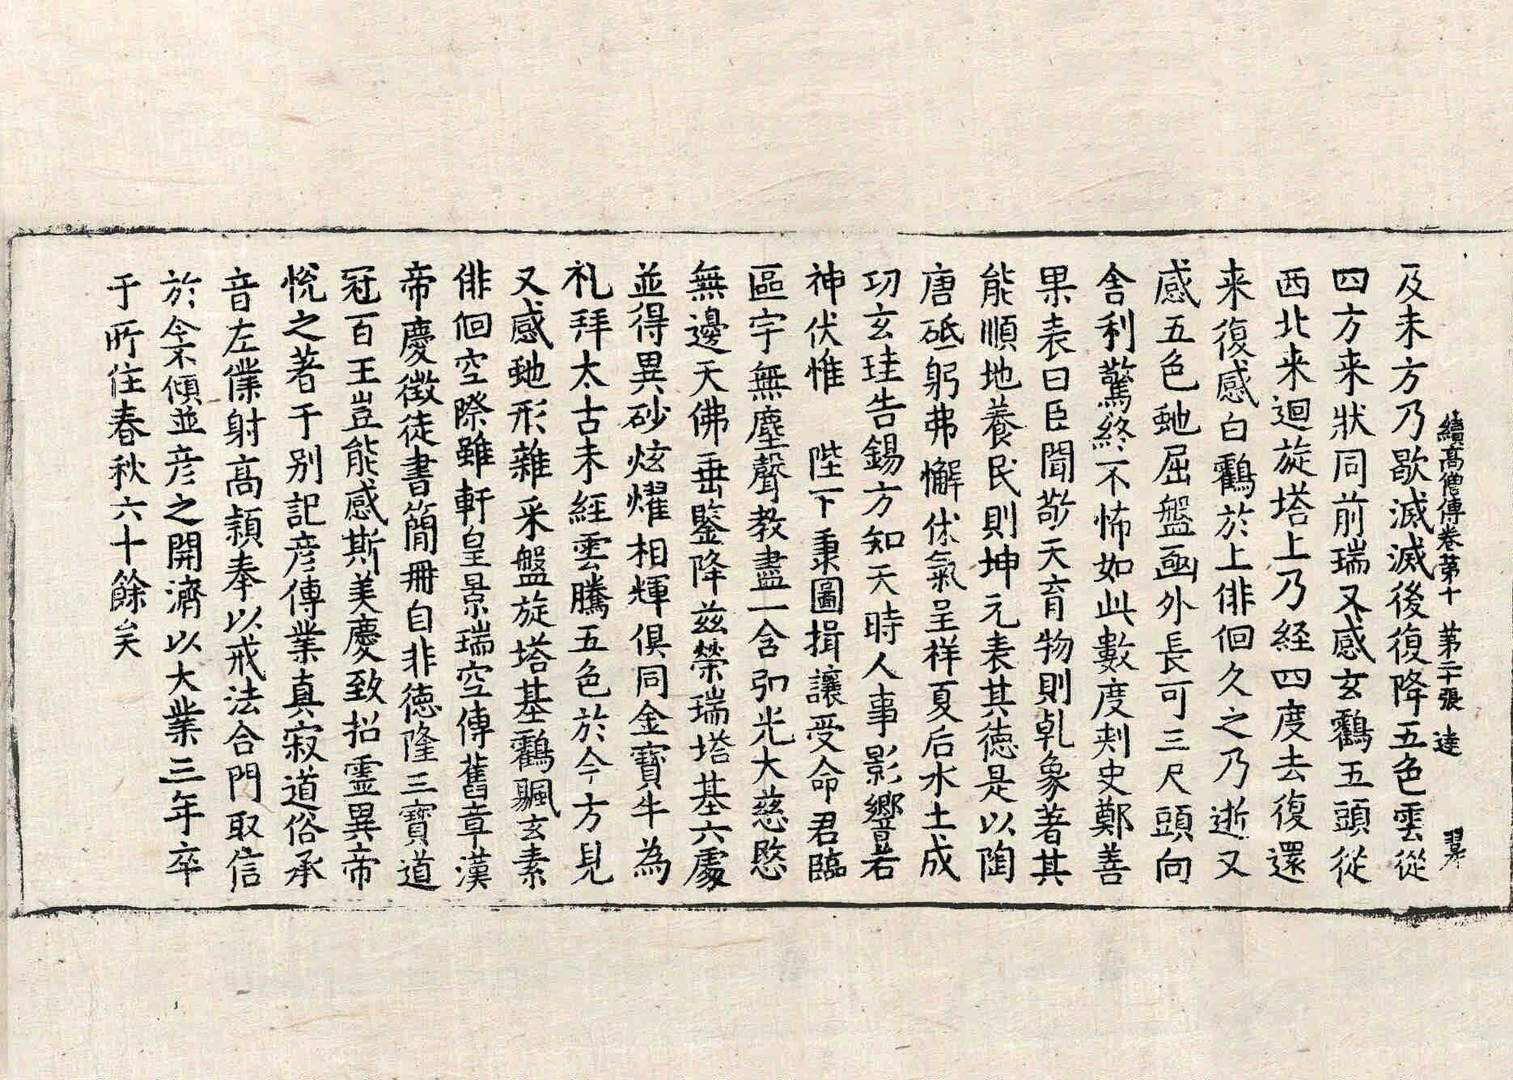 續高僧傳卷第十 第二十張 達
及未方乃歇滅滅後復降五色雲從
四方来狀同前瑞又感玄鶴五頭從
西北来迴旋塔上乃経四度去復還
来復感白鶴於上俳佪久之乃逝又
感五色虵屈盤凾外長可三尺頭向
舎利驚終不怖如此數度刾史鄭善
果表曰臣聞敬天育物則乹象著其
能順地養民則坤元表其徳是以陶
唐砥躬弗懈休氣呈祥夏后水土成
功玄珪告錫方知天時人事影響若
神伏惟 陛下秉圖揖讓受命君臨
區宇無塵聲教盡一含弘光大慈愍
無邊天佛垂鑒降兹榮瑞塔基六處
並得異砂炫燿相輝俱同金寶牛為
礼拜太古未経雲騰五色於今方見
又感虵形雜采盤旋塔基鸖颻玄素
俳佪空際雖軒皇景瑞空傳舊章漢
帝慶徴徒書簡冊自非徳隆三寶道
冠百王豈能感斯美慶致招霊異帝
悅之著于别記彦傳業真寂道俗承
音左僕射高熲奉以戒法合門取信
於今不傾並彦之開濟以大業三年卒
于所住春秋六十餘矣